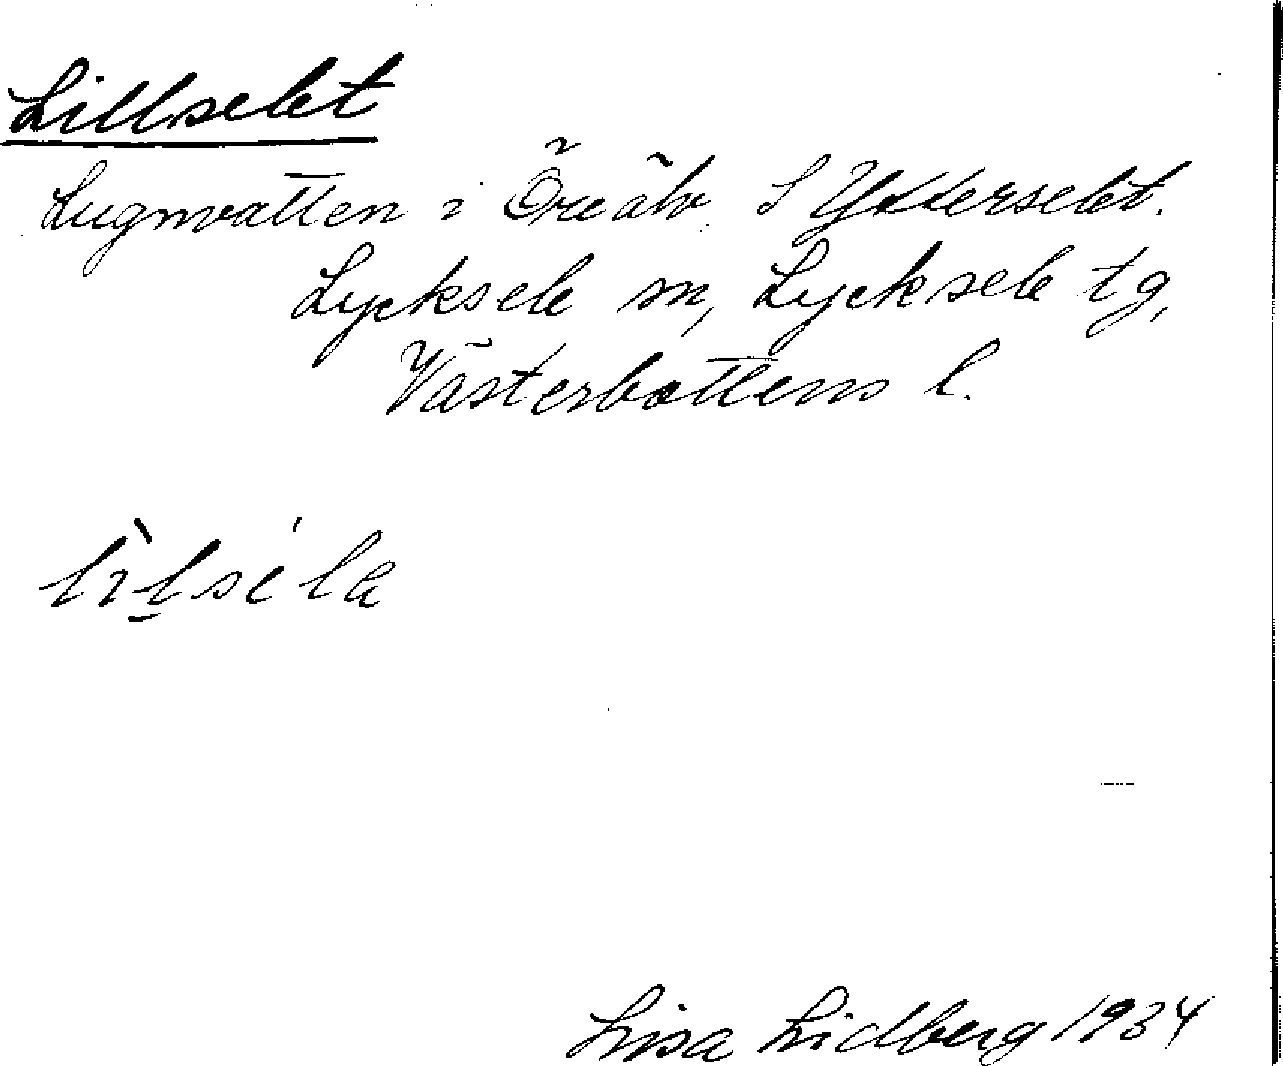 Lillselet
Lugnvatten i Öreälv S Ytterselet.
Lycksele sn, Lycksele tg,
Västerbottens l.
Lisa Lidberg 1934